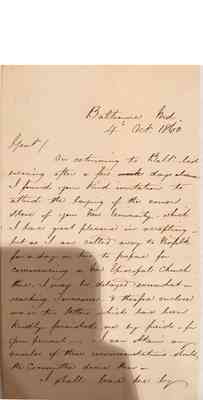 Baltimore Md
4th Oct 1860
Gent!
On returning to Balt. last
evening after a few days absence
I found your kind invitation to
attend the laying of the corner
Stone of your New University, which
I have great pleasure in accepting -
but as I am called away to
for a day or two to prepare for
commencing a new Episcopal Church
there, I may be delayed
reaching & therefore enclose
the letters which have been
kindly furnished me by
can obtain a
number of these recommendations should
the Committee desire them -
I shall leave here by